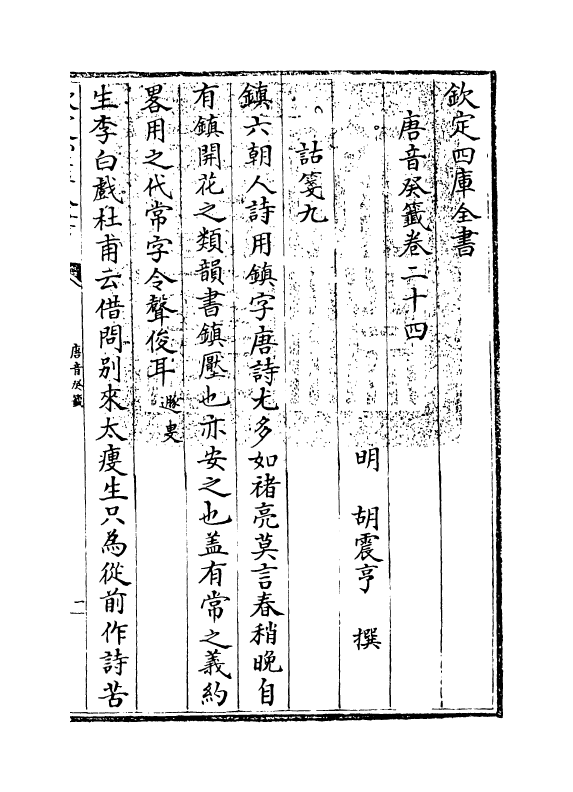 欽定四庫全書
唐音癸籤卷二十四
明 胡震亨 撰
詁箋九
鎮六朝人詩用鎮字唐詩尤多如褚亮莫言春稍晚自
有鎮開花之類韻書鎮壓也亦安之也盖有常之義約
畧用之代常字令聲俊耳 遯叟
生李白戲杜甫云借問別來太瘦生只為從前作詩苦
唐音癸籤